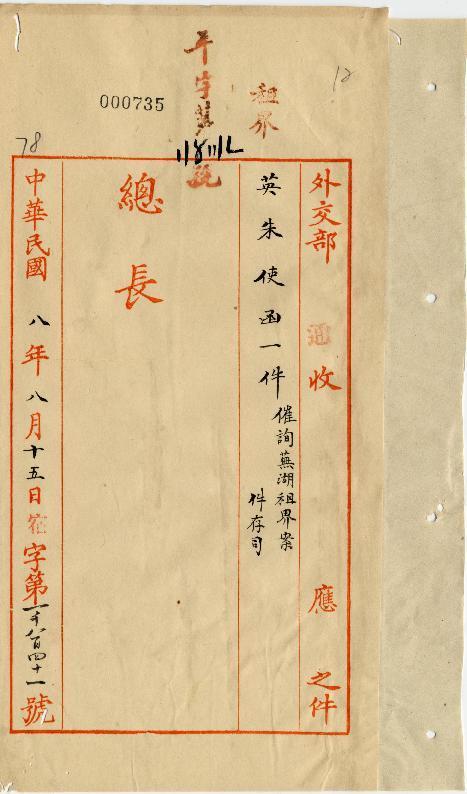 12
租界
年字第
號
000735
78
外交部 收 應 之件
英朱使函一件 催詢蕪湖租界案
件存司
總長
中華民國八年八月十五日 字第一千八百四十一號